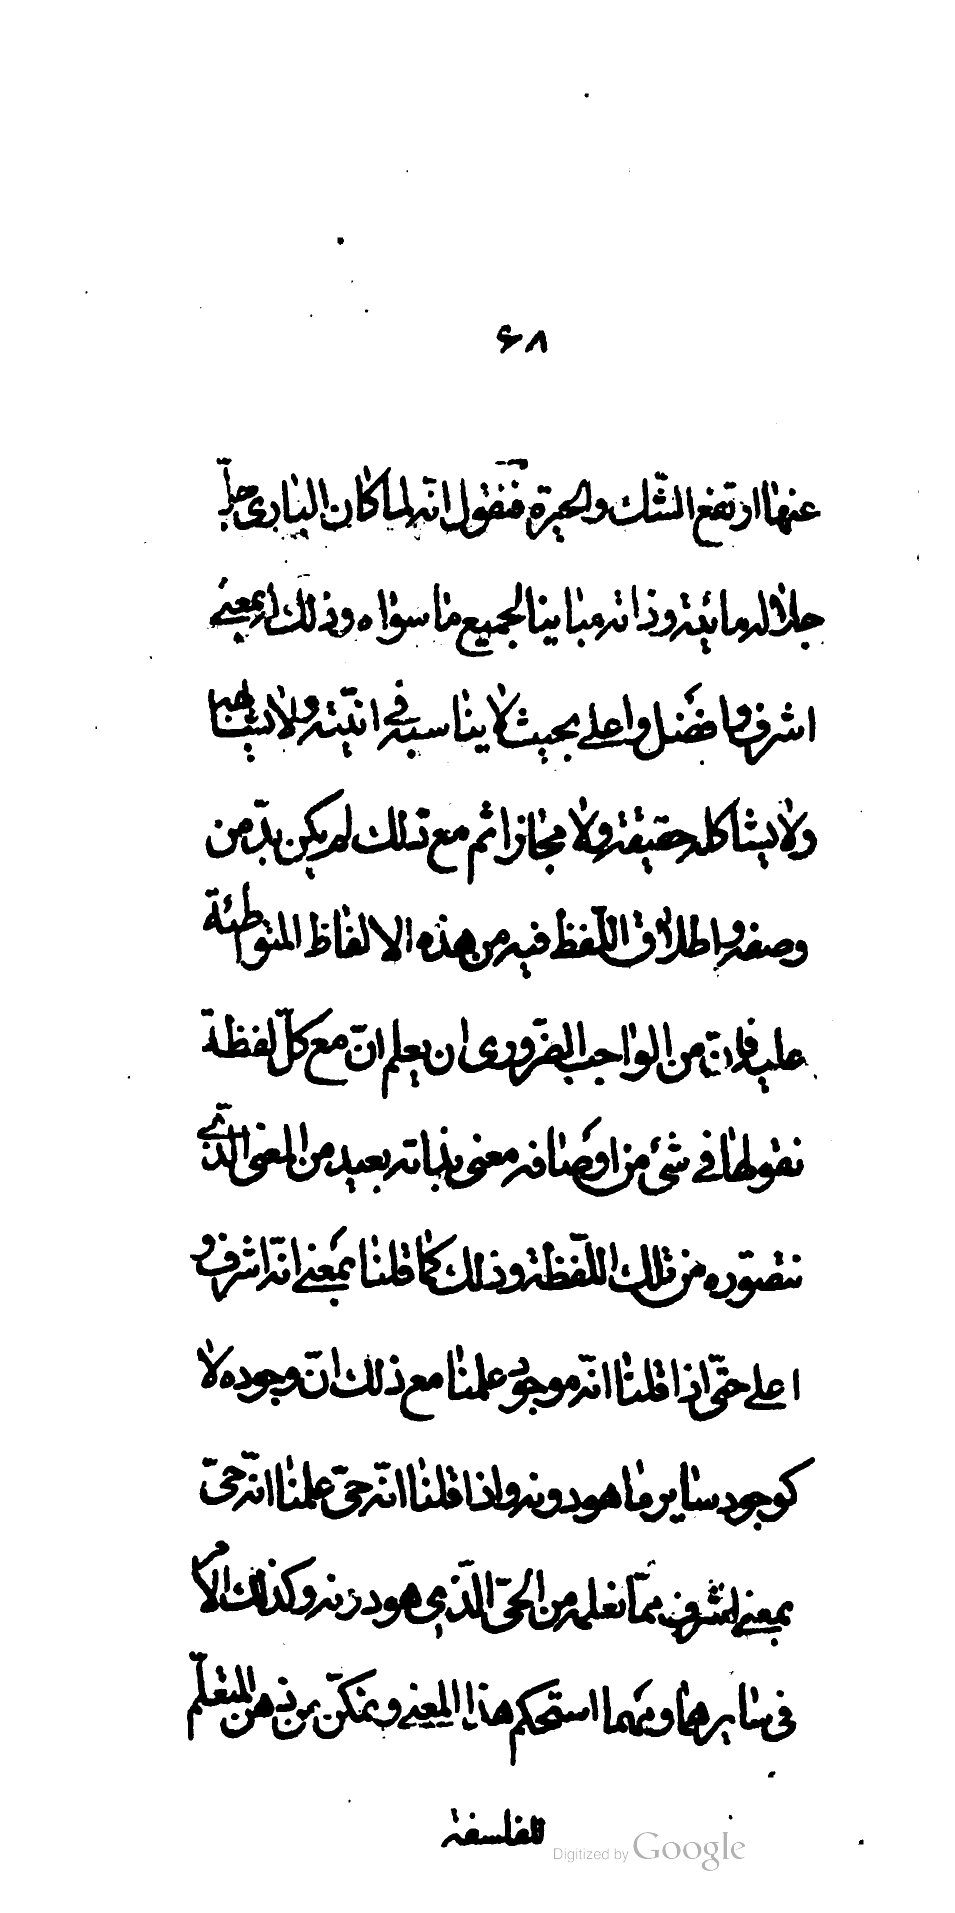 ۶۸
عنها ارتفع الشّك والحيرة فنقول انّه لما كان البارى جلّ
جلاله بمائيته وذاته مباينا لجميع ما سواه وذلك له بمعنى
اشرف وافضل واعلى بحيث لا يناسبه فى انيّته ولا يشابهه
ولا يشاكله حقيقة ولا مجازا ثم مع ذلك لم يكن بدّ من
وصفه واطلاق اللّفظ فيه من هذه الالفاظ المتواطئة
عليه فانّ من الواجب الضّرورى ان يعلم انّ مع كلّ لفظة
نقولها فى شئ من اوصافه معنى بذاته بعيد من المعنى الّذى
نتصوّره من تلك اللّفظة وذلك كما قلنا بمعنى انّه اشرف و
اعلى حتّى اذا قلنا انّه موجود علمنا مع ذلك انّ وجوده لا
كوجود ساير ما هو دونه واذا قلنا انّه حىّ علمنا انّه حىّ
بمعنى اشرف ممّا نعلمه من الحىّ الّذى هو دونه وكذلك الامر
فى سايرها ومهما استحكم هذا المعنى وتمكّن من ذهن المتعلّم
للفلسفة
Digitized by Google